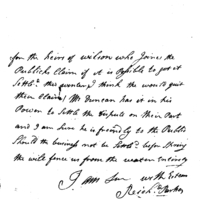 for the heirs of wilson who Joines the
Publick Claim if it is Possible to get it
Settld this quarter I think she would quit
their Claim Mr Duncan has it in his
Power to Settle the Dispute on their Part
and I am he is friendly to the Public
Should the business not be Settld before Spring
she will force us from the weston Entirely
I am Sir with Esteem
Richd Parker